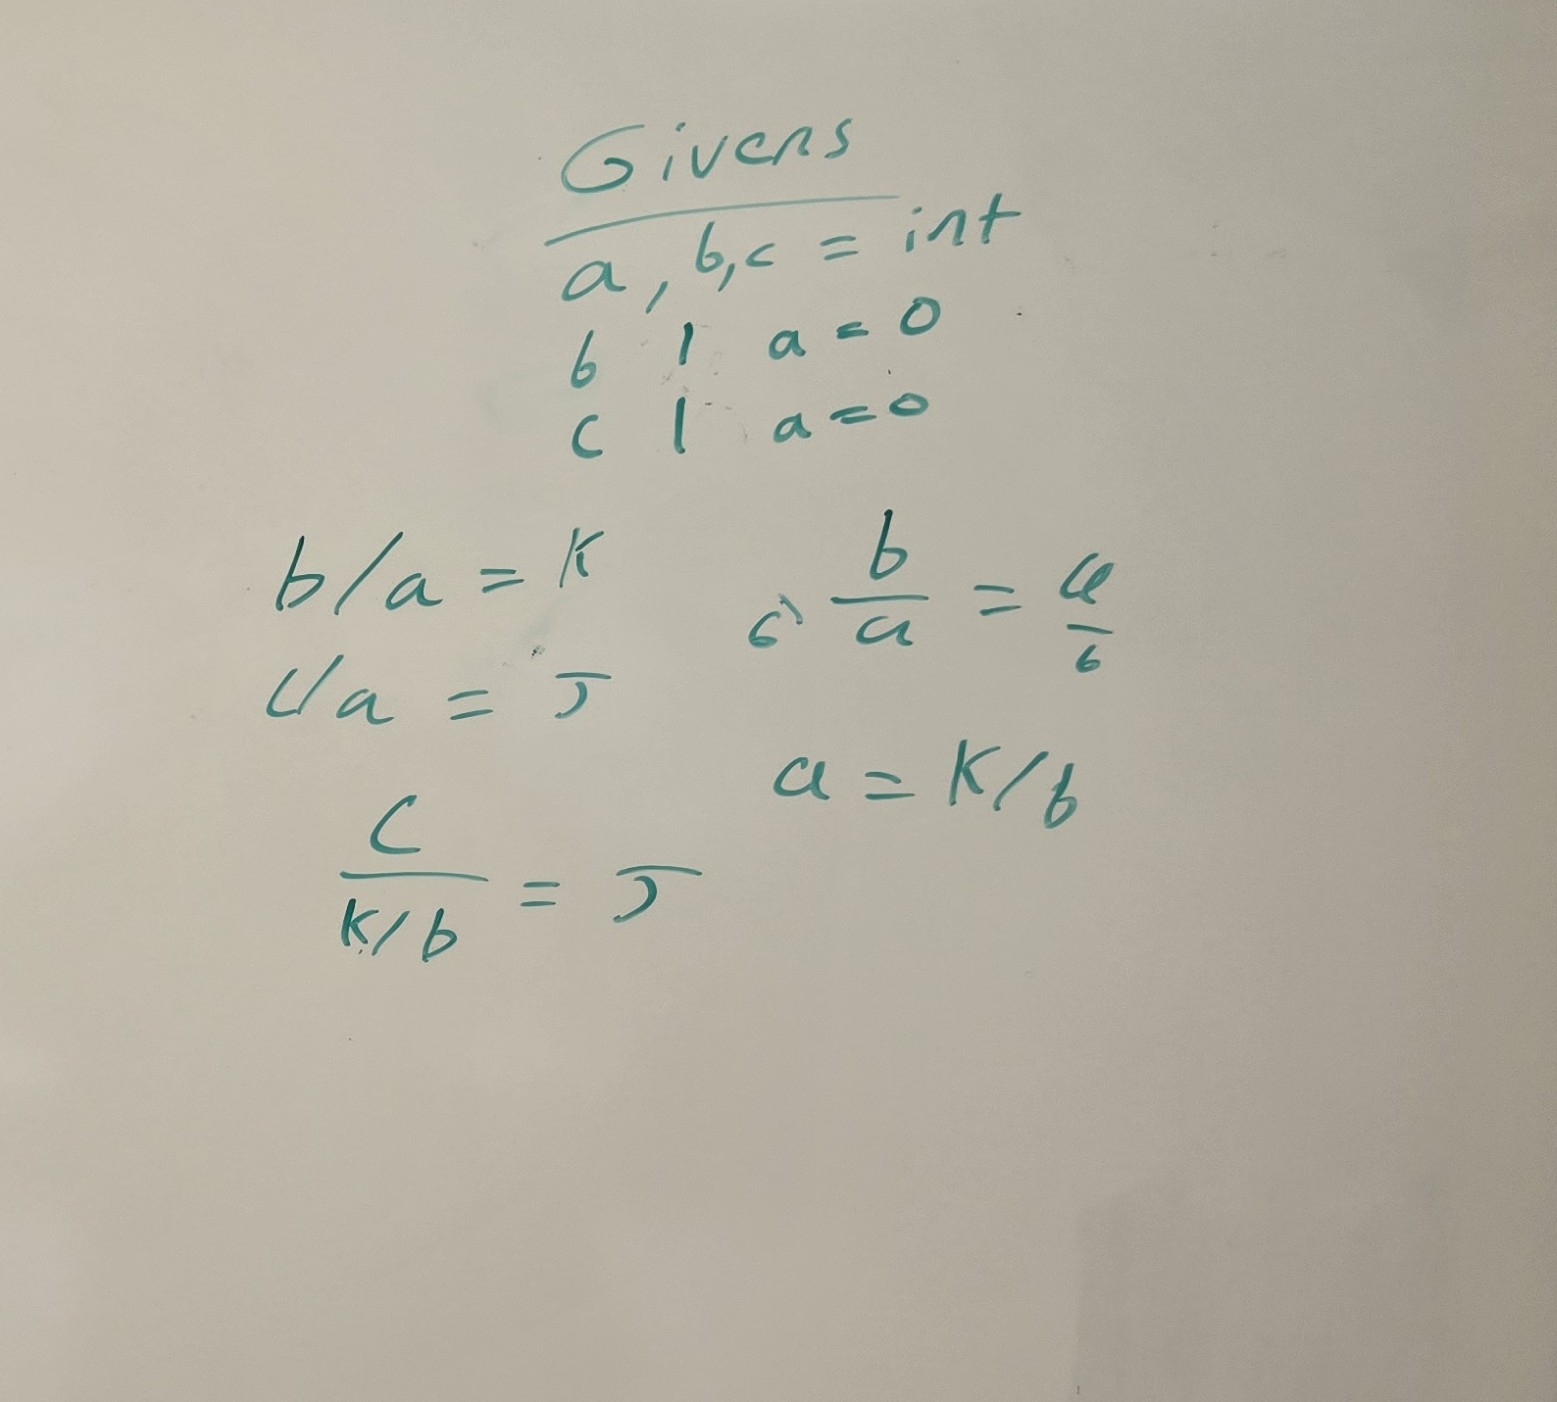 Givens
a, b,c = int
b | a = 0
c | a = 0
b/a = K
c/a = J
b/a = /6
a = K/b
C
K/b = J